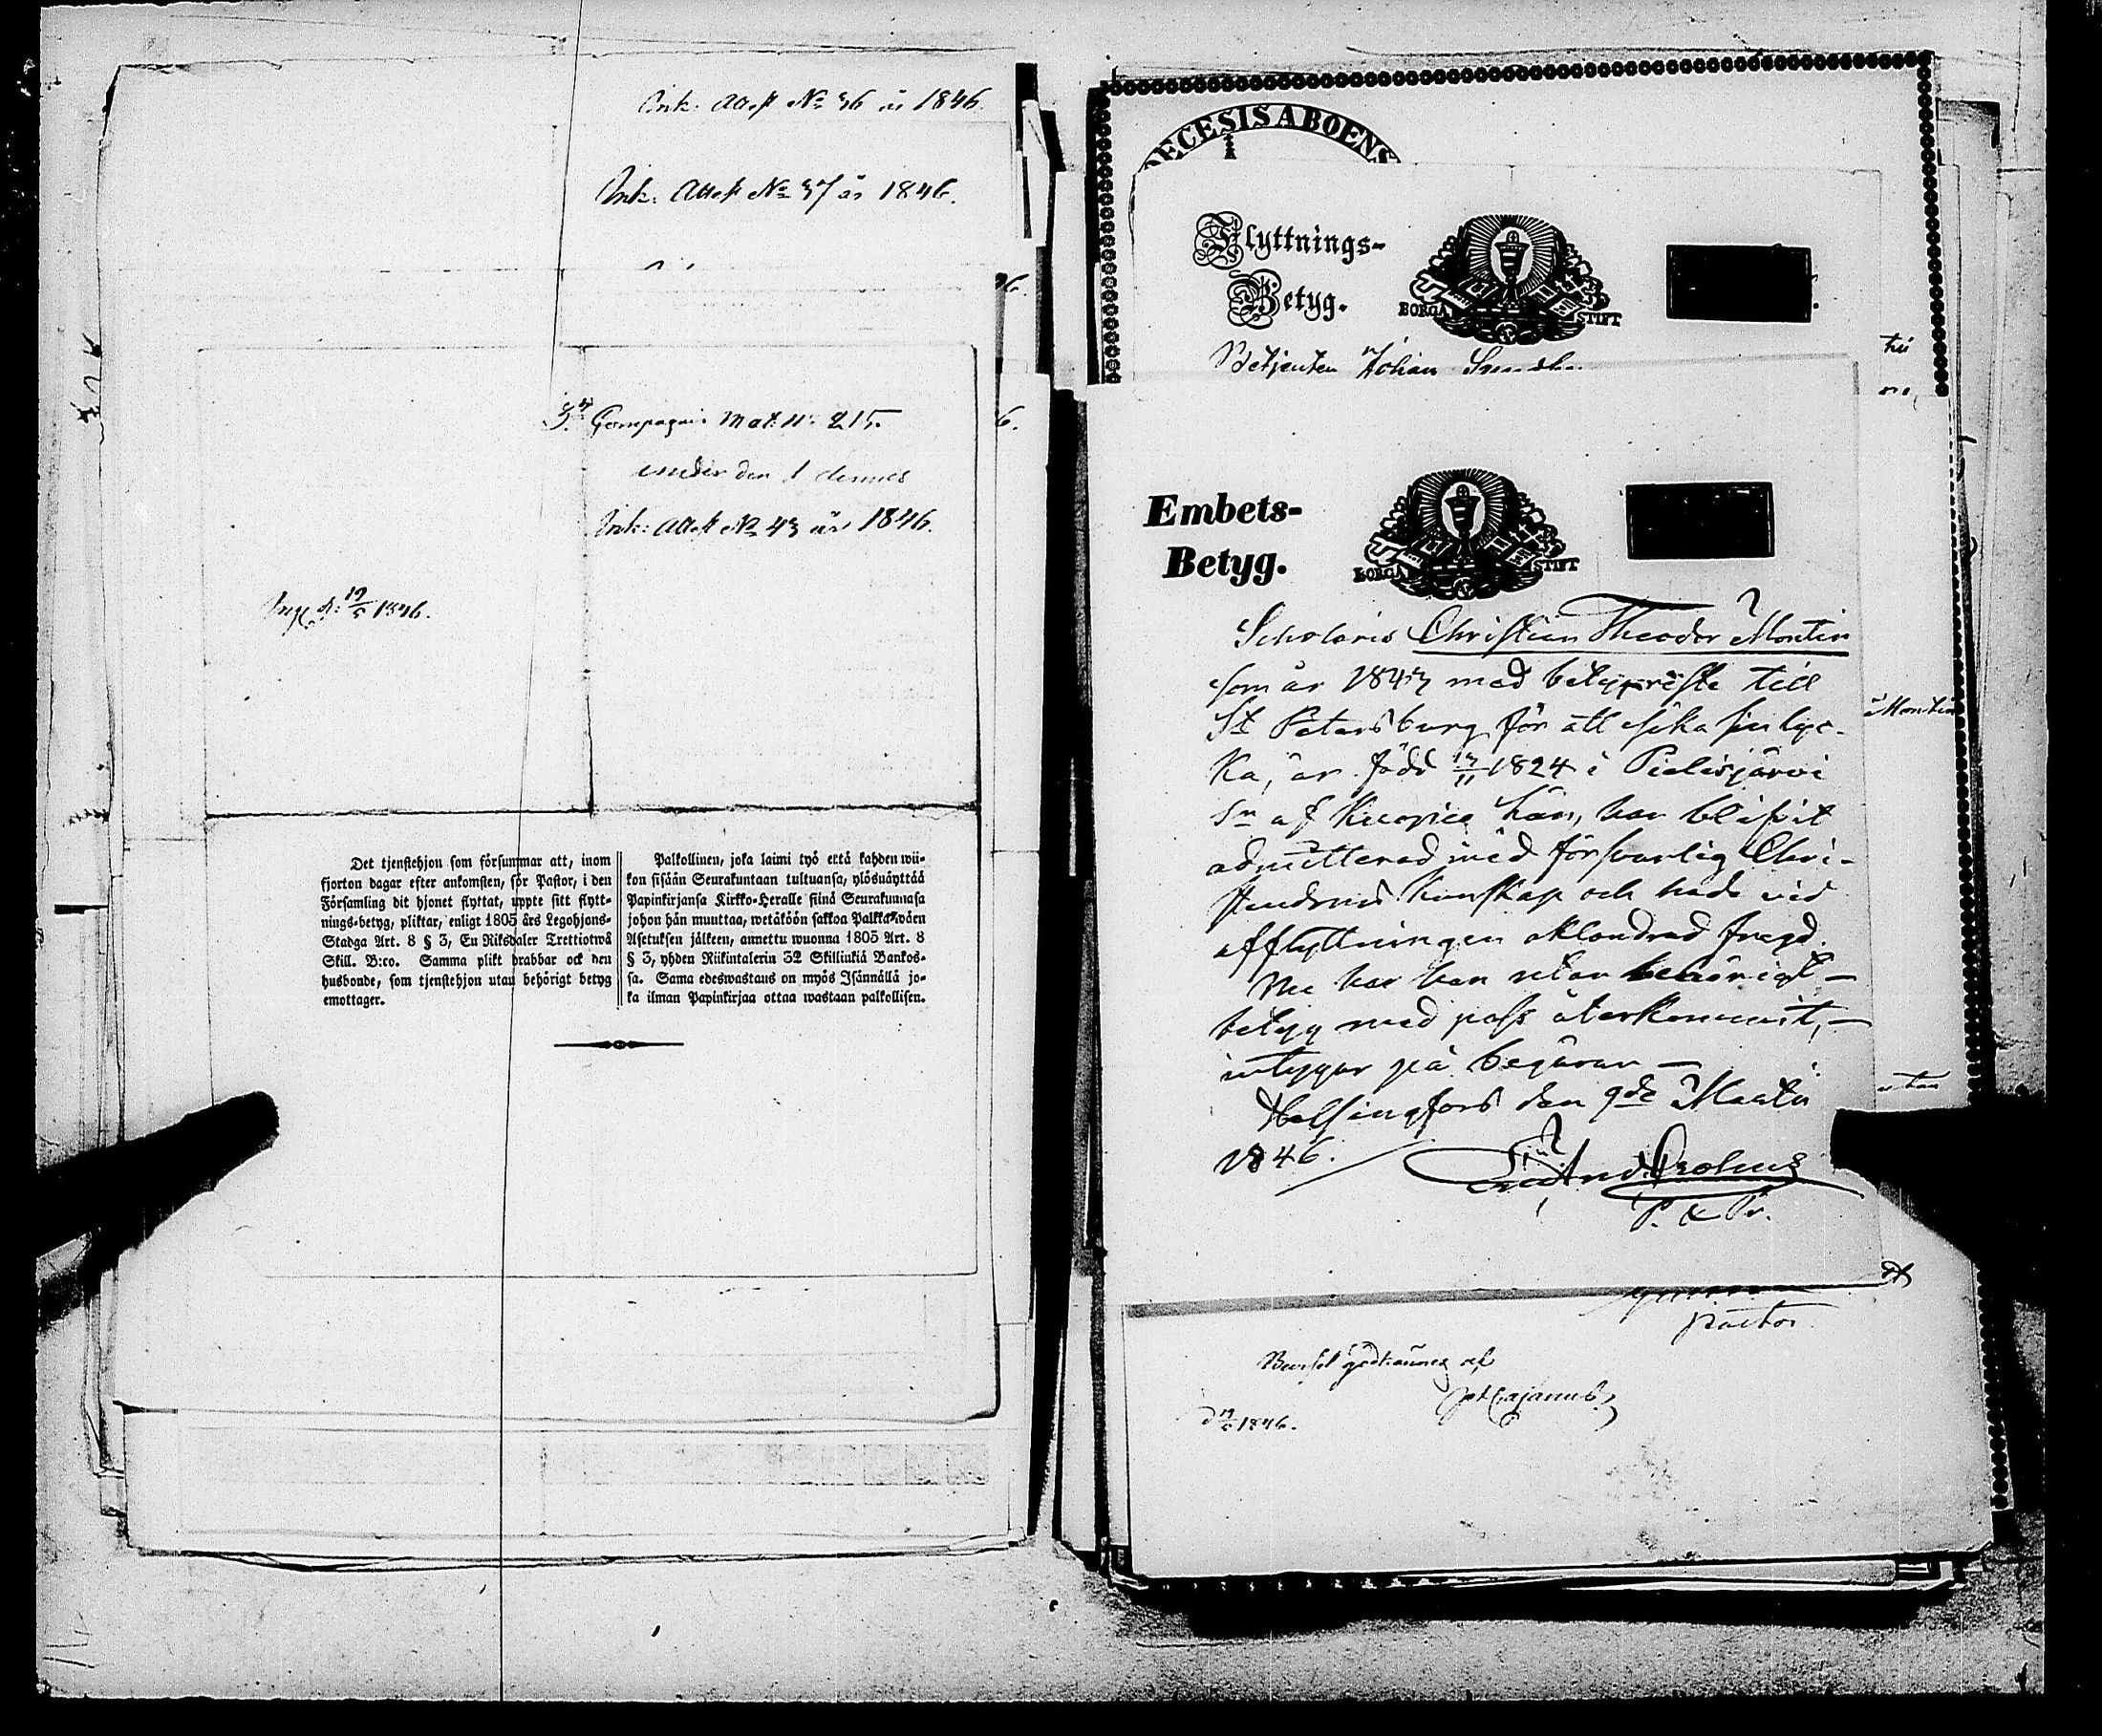 Ink. Attest No 36 år 1846.
Ink. Attest No 37 år 1846.
6.
3. Compagni Mat. N. 215.
under den 1 dennes
Ink: Attest No 43 år 1846.
6.
Ingf. d: 19/5 1846.
Det tjenstehjon som försummar att, inom
fjorton dagar efter ankomsten, för Pastor, i den
Församling dit hjonet flyttat, uppte sitt flytt-
nings-betyg, pliktar, enligt 1805 års Legohjons-
Stadga Art. 8 § 3, En Riksdaler Trettiotwå
Skill. B:co. Samma plikt drabbar ock den
husbonde, som tjenstehjon utan behörigt betyg
emottager.
Palkollinen, joka laimi työ että kahden wii-
kon sisään Seurakuntaan tultuansa, ylösnäyttää
Papinkirjansa Kirkko-Heralle siinä Seurakunnasa
johon hän muuttaa, wetäköön sakkoa Palkkawäen
Asetuksen jälkeen, annettu wuonna 1805 Art. 8
§ 3, yhden Riikintalerin 32 Skillinkiä Bankos-
sa. Sama edeswastaus on myös Isännällä jo-
ka ilman Papinkirjaa ottaa wastaan palkollisen.
ECESIS ABOENS
Flyttnings-
Betyg.
BORGÅ STIFT
Betjenten Johan
Embets-
Betyg.
BORGÅ STIFT
Scholaris Christian Theodor Montin
som år 1843 med betyg reste till
St Petersburg för att söka sin lyc-
ka, är född 13/11 1824 i Pielisjärvi
Sn af Kuopio Län, har blifvit
admitterad med försvarlig Chri-
stendoms kunskap och hade vid
afflyttningen oklandrad fregd.
Nu har han utan behörigt –
betyg med pass återkommit, –
intygar på begäran –
Helsingfors den 9de Martii
1846.
P. & Pr.
Montin
utan
Pastor.
Bevisel godkännes af
Cajanus
d 19/5 1846.